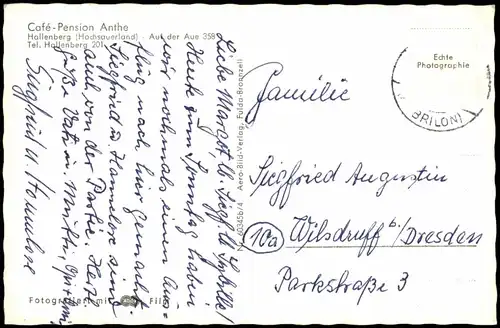 Café-Pension Anthe
Hallenberg (Hochsauerland) - Auf der Aue 359
Tel. Hallenberg 201
Liebe Margot lb. Siegf. lb. Sybille!
Heute zum Sonntag haben
wir nochmals einen Aus-
flug nach hier gemacht.
Siegfried u. Hannelore sind
auch von der Partie. Herzl.
Grüße Vati u. Mutti,
Siegfried u. Hannelore
Fotografiert mit Film
Nr. 60345b/4 Aero-Bild-Verlag, Fulda-Bronnzell
Echte
Photographie
(BRILON)
Familie
Siegfried Augustin
10a Wilsdruff b./Dresden
Parkstraße 3